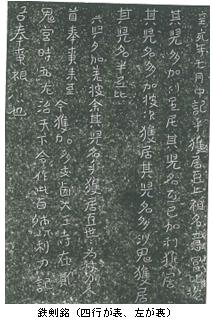 辛亥年七月中記乎獲居臣上祖名意富比垝
其児多加利足尼其児名弖已加利獲居
其児名多加披次獲居其児名多沙鬼獲居
其児名半弖比
其児名加差披余其児名乎獲居臣世々為杖刀人
首奉事来至今獲加多支鹵大王寺在斯
鬼宮時吾左治天下令作此百練利刀記
吾奉事根原也
鉄剣銘（四行が表、左が裏）